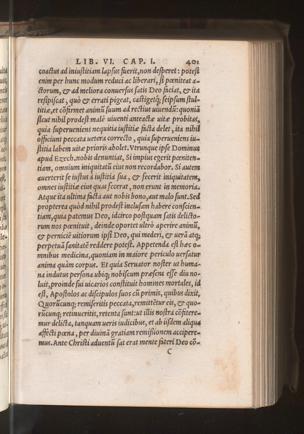 LIB. VI. CAP. I. 401
coactus ad iniustitiam lapsus fuerit, non desperet: potest
enim per hunc modum reduci ac liberari, si pœniteat a-
ctorum, & ad meliora conuersus satis Deo faciat, & ita
resipiscat, quò & errati pigeat, castigetq́; seipsum stul-
titiæ, et cõfirmet animũ suum ad rectius uiuendũ: quoniã
sicut nihil prodest malè uiuenti anteactæ uitæ probitas,
quia superueniens nequitia iustitiæ facta delet, ita nihil
officiunt peccata uetera correcto, quia superueniens iu-
stitia labem uitæ prioris abolet. Vtrunque ipse Dominus
apud Ezech. nobis denunciat, Si impius egerit pœniten-
tiam, omnium iniquitatũ eius non recordabor. Si autem
auerterit se iustus à iustitia sua, & fecerit iniquitatem,
omnes iustitiæ eius quas fecerat, non erunt in memoria.
Atque ita ultima facta aut nobis bono, aut malo sunt. Sed
propterea quòd nihil prodest inclusam habere conscien-
tiam, quia patemus Deo, idcirco postquam satis delicto-
rum nos pœnituit, deinde oportet ultrò aperire animũ,
et perniciẽ uitiorum ipsi Deo, qui mederi, & uerã atq́;
perpetuã sanitatẽ reddere potest. Appetenda est hæc o-
mnibus medicina, quoniam in maiore periculo uersatur
anima quàm corpus. Et quia Seruator noster ut huma-
na indutus persona ubiq́; nobiscum præsens esse diu no-
luit, proinde sui uicarios constituit homines mortales, id
est, Apostolos ac discipulos suos cũ primis, quibus dixit,
Quorũcunq; remiseritis peccata, remittẽtur eis, & quo-
rũcunq; retinueritis, retenta sunt: ut illis nostra cõfitere-
mur delicta, tanquam ueris iudicibus, et ab ijsdem aliqua
affecti pœna, per diuinã gratiam remissionem accipere-
mus. Ante Christi aduentũ sat erat mente fateri Deo cõ-
C